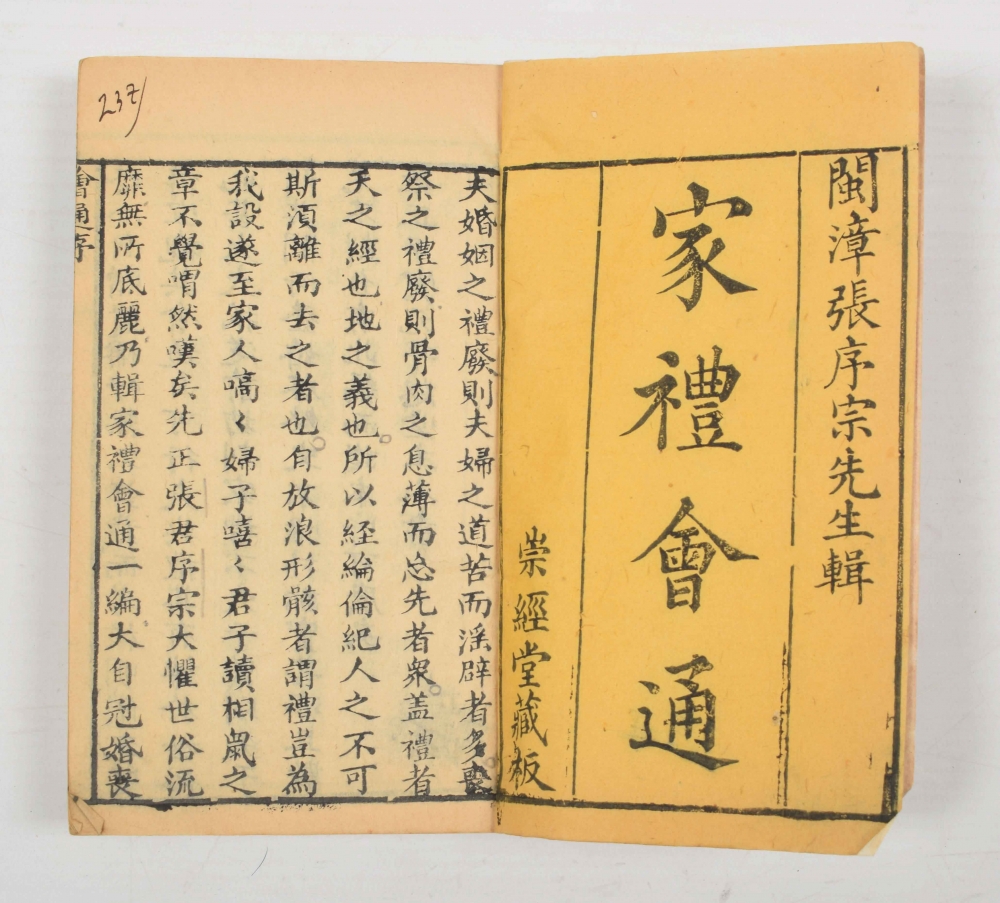 閩漳張序宗先生輯
家禮會通
崇經堂藏板
237/
夫婚姻之禮廢則夫婦之道苦而淫辟者多喪
祭之禮廢則骨肉之息薄而忘先者衆盖禮者
天之經也地之義也所以経綸倫紀人之不可
斯湏離而去之者也自放浪形骸者謂禮豈為
我設遂至家人嗃〻婦子嘻〻君子讀相䑕之
章不覺喟然嘆矣先正張君序宗大懼世俗流
靡無所底麗乃輯家禮會通一編大自冠婚喪
會通序